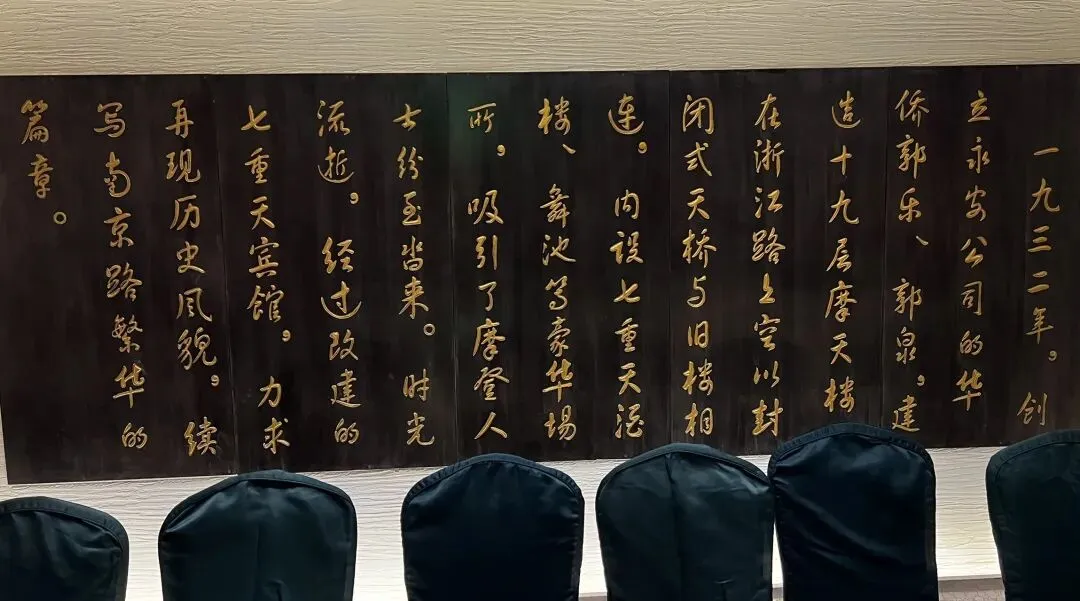 一九三二年，创
立永安公司的华
侨郭乐、郭泉，建
造十九层摩天楼
在浙江路上空以封
闭式天桥与旧楼相
连，内设七重天酒
楼、舞池等豪华场
所，吸引了摩登人
士纷至沓来。时光
流逝，经过改建的
七重天宾馆，力求
再现历史风貌，续
写南京路繁华的
篇章。